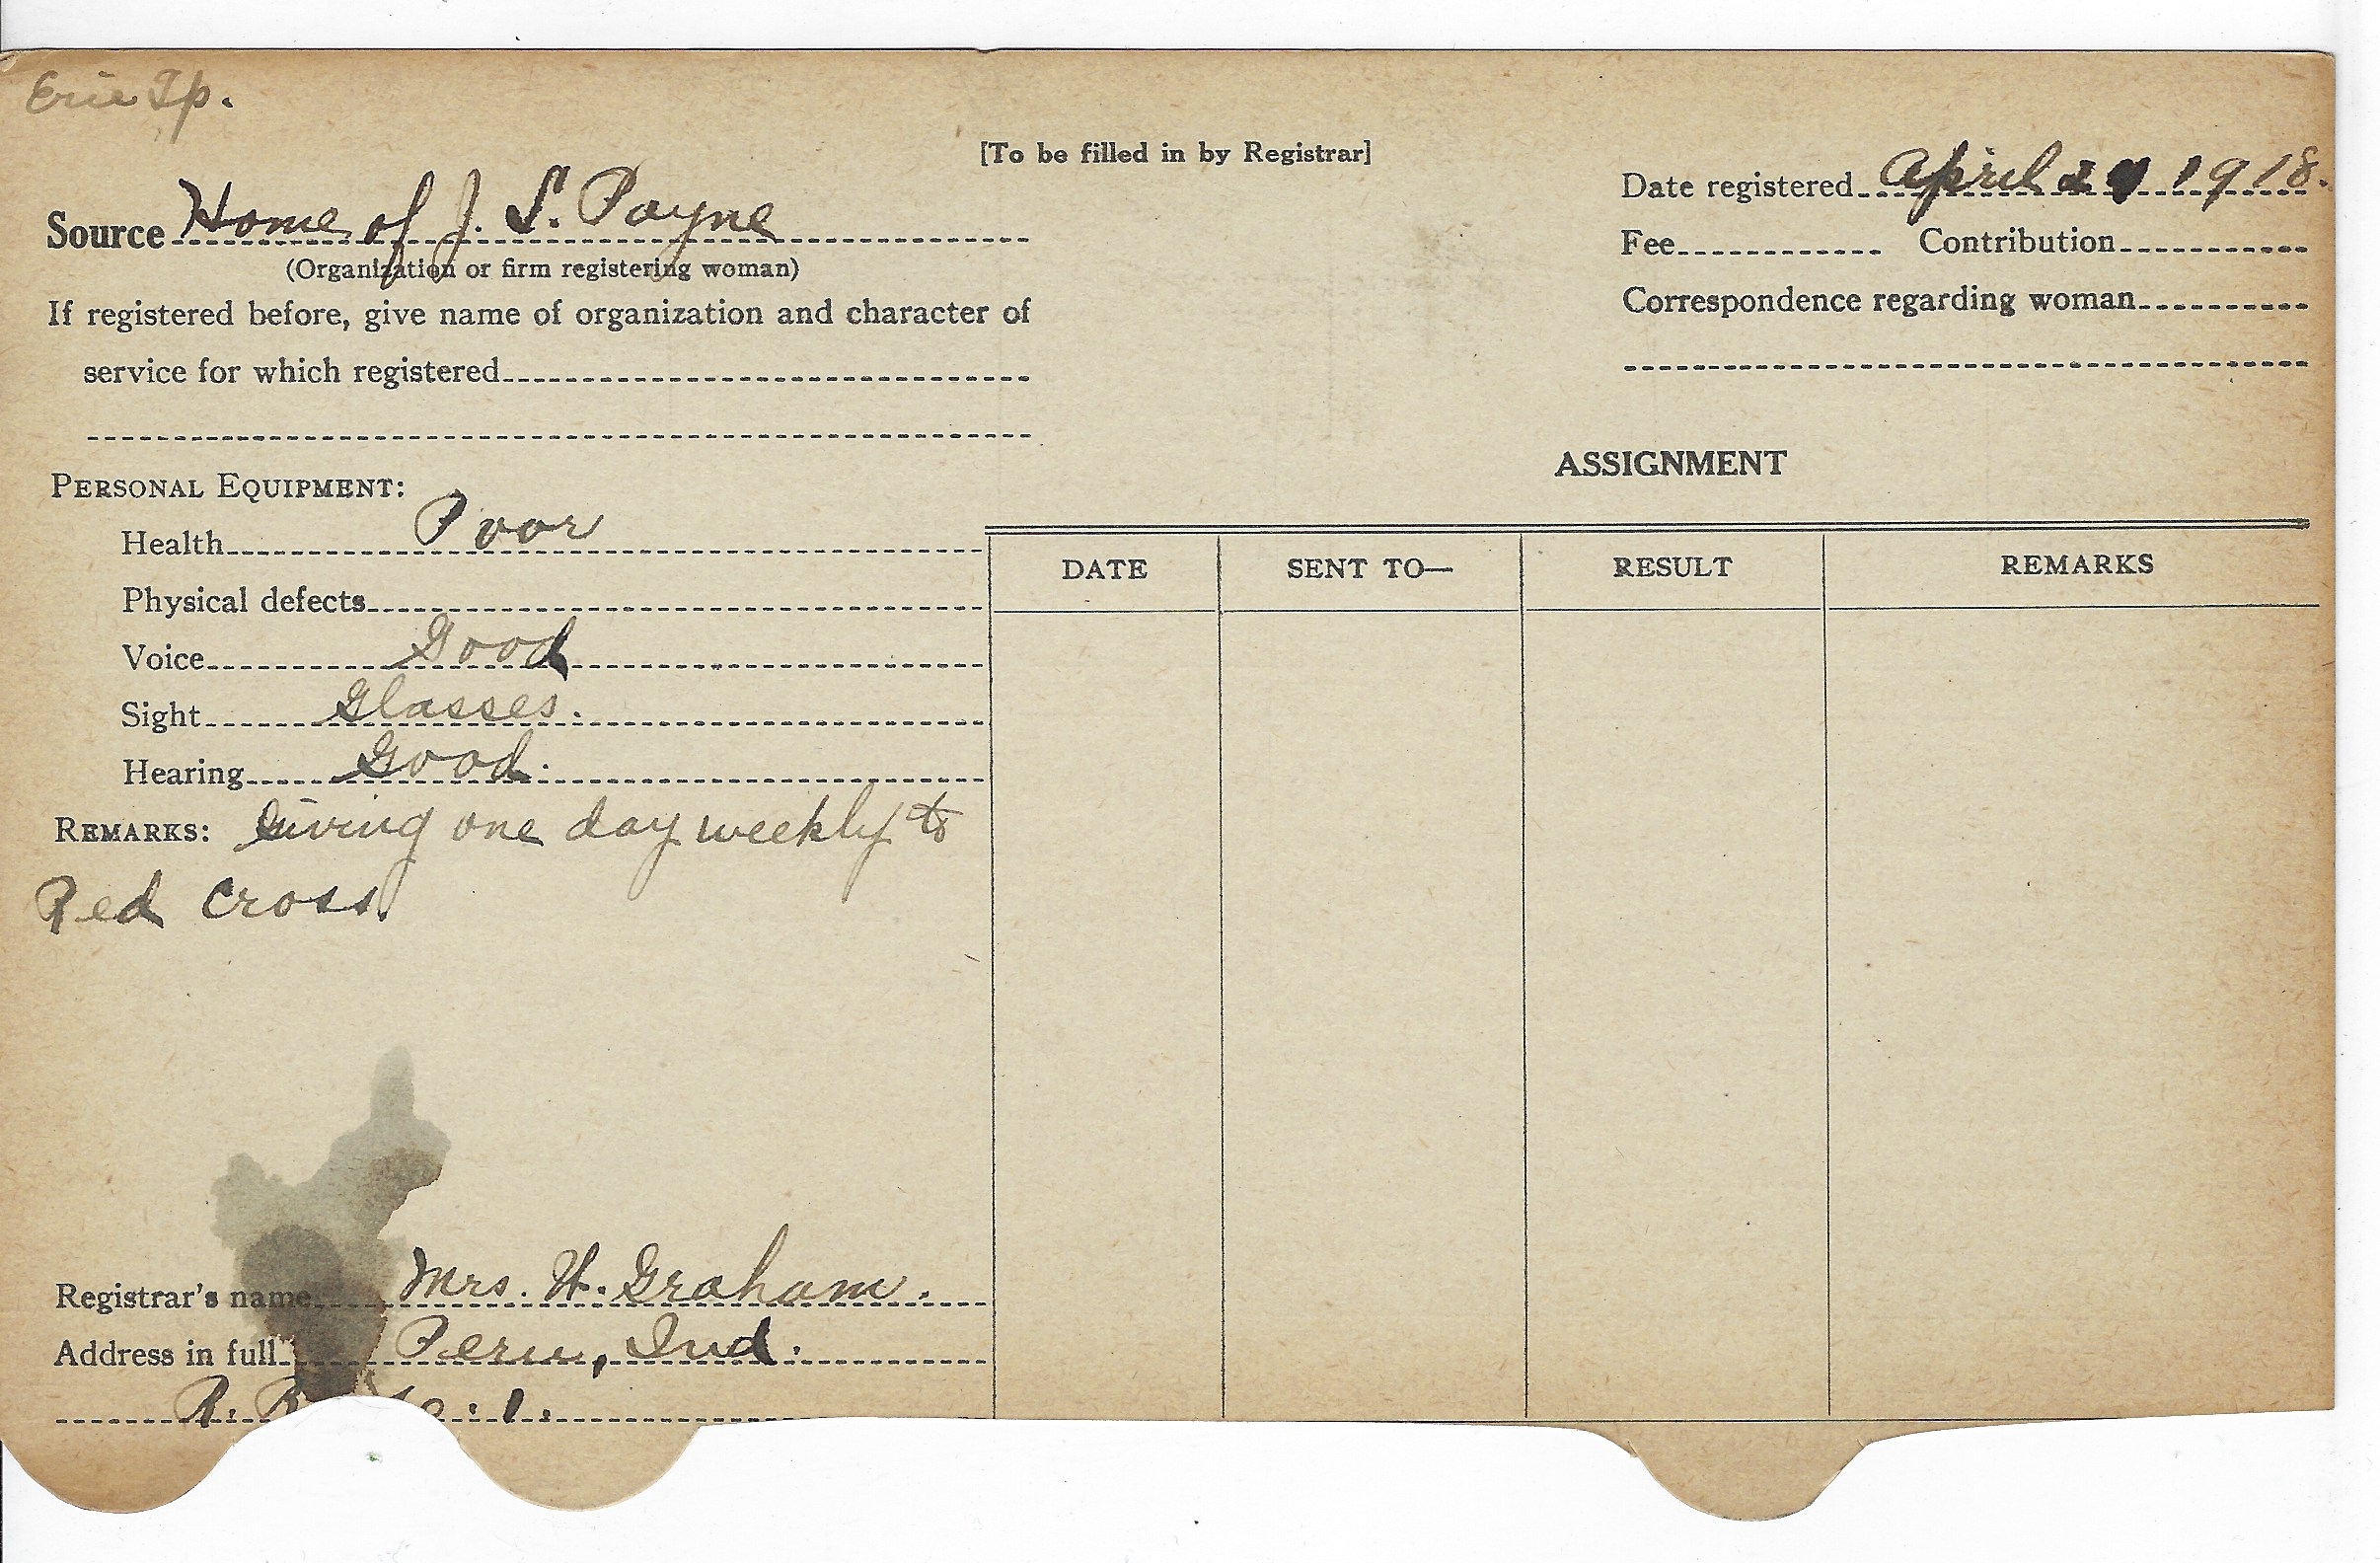 Erie Tp.
[To be filled in by Registrar]
Source Home of J. S. Payne
(Organization or firm registering woman)
If registered before, give name of organization and character of
service for which registered
Date registered April 1918.
Fee Contribution
Correspondence regarding woman
PERSONAL EQUIPMENT:
Health Poor
Physical defects
Voice Good
Sight Glasses.
Hearing Good.
REMARKS: Giving one day weekly to
Red Cross.
ASSIGNMENT
DATE SENT TO— RESULT REMARKS
Registrar's name Mrs. H. Graham.
Address in full Peru, Ind.
R. 1.